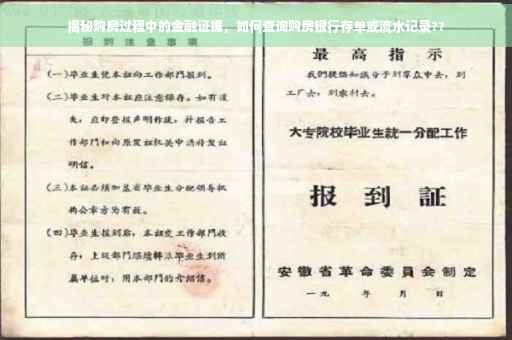 揭秘购房过程中的金融证据，如何查询购房银行存单或流水记录??
报到注意事项
(一)毕业生凭本证向工作部门报到。
(二)毕业生对本证应注意保存。如有遗
失，应即登报声明作废，并报告工
作部门和向原发证机关申请补发证
明信。
(三)本证必须加盖省毕业生分配领导机
构公章方为有效。
(四)毕业生报到后，本证交工作部门收
存；上级部门
毕业生到所
属单位时，用本部门的介绍信。
最高指示
我们提倡知识分子到群众中去，到
工厂去，到农村去。
大专院校毕业生统一分配工作
报到证
安徽省革命委员会制定
一九 年 月 日